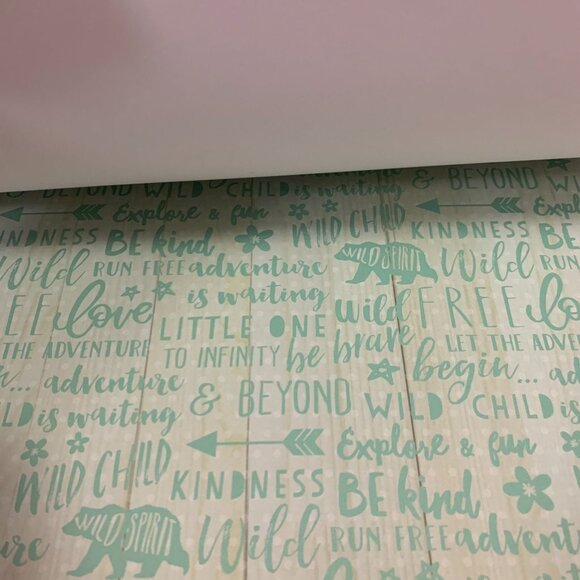 & BEYOND WILD CHILD is waiting & BEYOND
Explore & fun WILD CHILD Explore
KINDNESS BE kind KINDNESS BE
Wild RUN FREE adventure WILD SPIRIT Wild RUN
is waiting
FREE love LITTLE ONE wild FREE love
THE ADVENTURE TO INFINITY be brave LET THE ADVE
adventure & BEYOND begin... ad
is waiting WILD CHILD is wa
Explore & fun
WILD CHILD KINDNESS BE kind
WILD SPIRIT Wild RUN FREE adventure